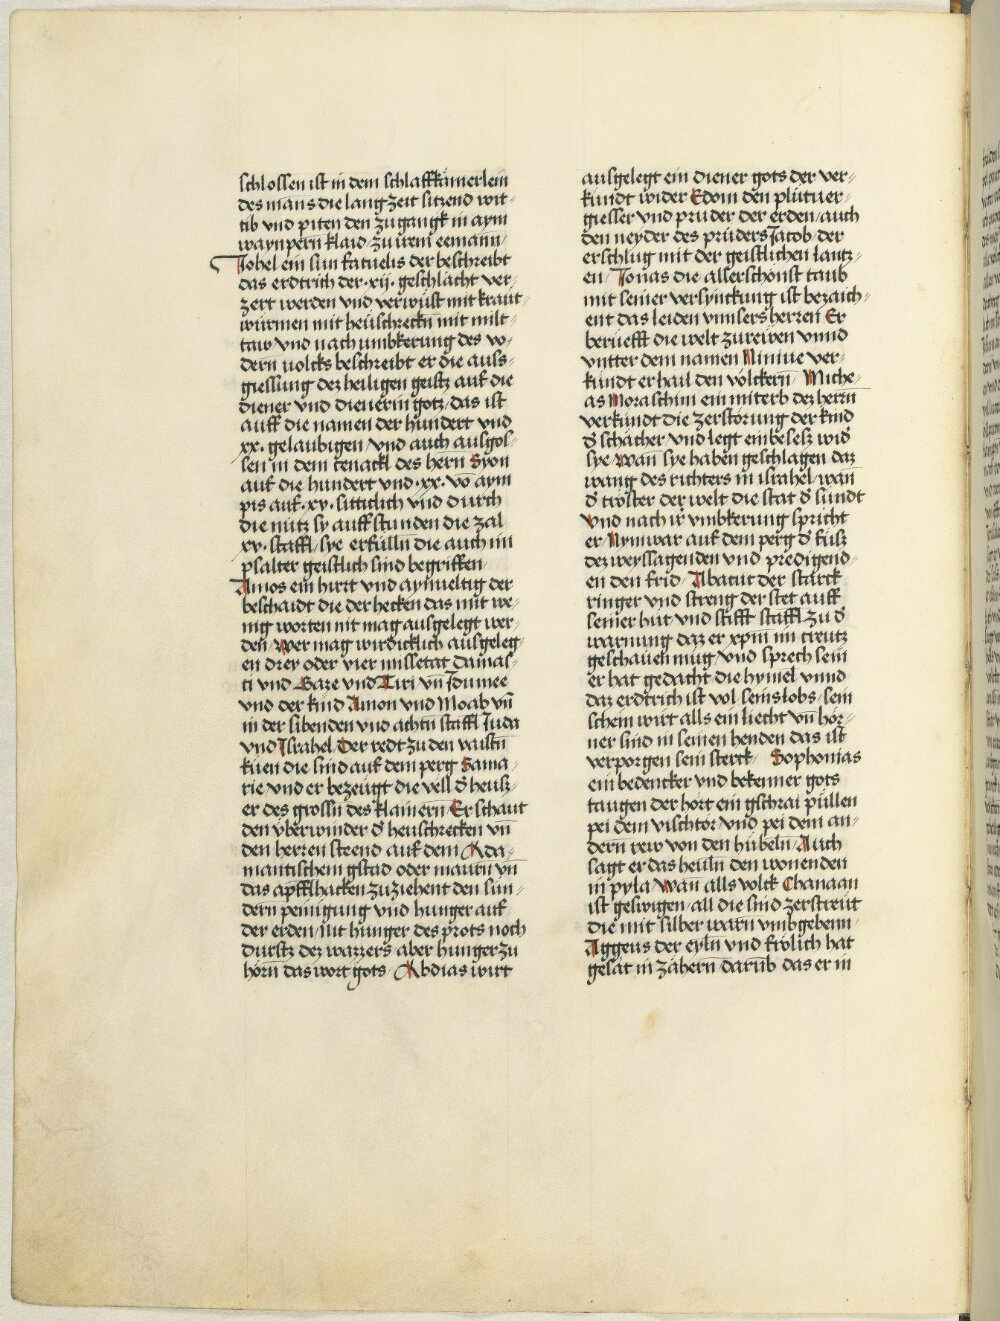 schlossen ist in dem schlaffkamerlein
des mans die lang zeit sitzend wit⸗
tib vnd piten den zugangk in aym
waynpern klaid zu irem eemann
Johel ein sun fatuelis der beschreibt
das erdtrich der ·xij· geschlächt ver⸗
zert werden vnd verwüst mit kraut⸗
würmen mit heüschreckn mit milt⸗
taw vnd nach vmbkerung des vo⸗
dern uolcks beschreibt er die auss⸗
giessung dez heiligen geistz auf die
diener vnd dienerin gotz das ist
auff die namen der hundert vnd
xx· gelaubigen vnd auch ausgos⸗
sen in dem cenackl des hern Syon
auf die hundert vnd ·xx· võ aym
pis auf ·xv· sittitlich vnd durch
die nütz sy auff stunden die zal
xv· staffl sye erfülln die auch im
psalter geistlich sind begriffen
Amos ein hirt vnd aynueltig der
beschaidt die der hecken das mit we⸗
nig worten nit mag ausgelegt wer⸗
den Wer mag wirdicklich ausgeleg⸗
en drey oder vier missetat Damas⸗
ti vnd Gaze vnd Tiri vñ Jdumee
vnd der kind Amon vnd Moab vñ
in der sibenden vnd achtn staffl Juda
vnd Jsrahel Der redt zu den vaistn
küen die sind auf dem perg Sama⸗
rie vnd er bezeügt die vell d̉ heüsz⸗
er des grossn des klainern Er schaut
den vberwinder d̉ heuschrecken vñ
den herren steend auf dem Ada⸗
mantischem gstad oder maurn vñ
das apffl hacken zuziehent den sün⸗
dern penigung vnd hunger auf
der erden nit hunger des prots noch
dursts dez wazzers aber hunger zu
hörn das wort gots Abdias wirt
ausgelegt ein diener gots der ver⸗
kündt wider Edom den plutuer⸗
giesser vnd pruder der erden auch
den neyder des prüders Jacob der
erschlug mit der geistlichen lantz⸗
en Jonas die allerschönst taub
mit seiner versynckung ist bezaich⸗
ent das leiden vnnsers herren Er
berüefft die welt zu rewen vnnd
vntter dem namen Niniue ver⸗
kündt er hail den völckern Miche⸗
as Moraschim ein miterb dez herrn
verkündt die zerstörung der kind
d̉ schächer vnd legt ein besesz wid̉
sye wan̄ sye haben geschlagen daz
wang des richters in israhel wan̄
d̉ tröster der welt die stat d̉ sündt
Vnd nach ir vmbkerung spricht
er Nym war auf dem perg d̉ füsz
dez weyssagenden vnd predigend⸗
en den frid Abacuc der starck
ringer vnd streng der stet auff
seiner hüt vnd stifft staffl zu d̉
warnung daz er xpm̄ im creutz
geschauen müg vnd sprech sein
er hat gedacht die hymel vnnd
daz erdtrich ist vol seins lobs sein
schein wirt alls ein liecht vñ hör⸗
ner sind in seinen henden das ist
verporgen sein sterck Sophonias
ein bedencker vnd bekenner gots
taugen der hört ein gschrai püllen
pei dem vischtor vnd pei dem an⸗
dern rew von den hübeln Auch
sagt er das heuln den wonenden
in pyla Wan̄ alls volck Chanaan
ist geswigen all die sind zerstreut
die mit silber warn vmbgebenn
Aggeus der eyln vnd frölich hat
gesät in zähern darüb das er in